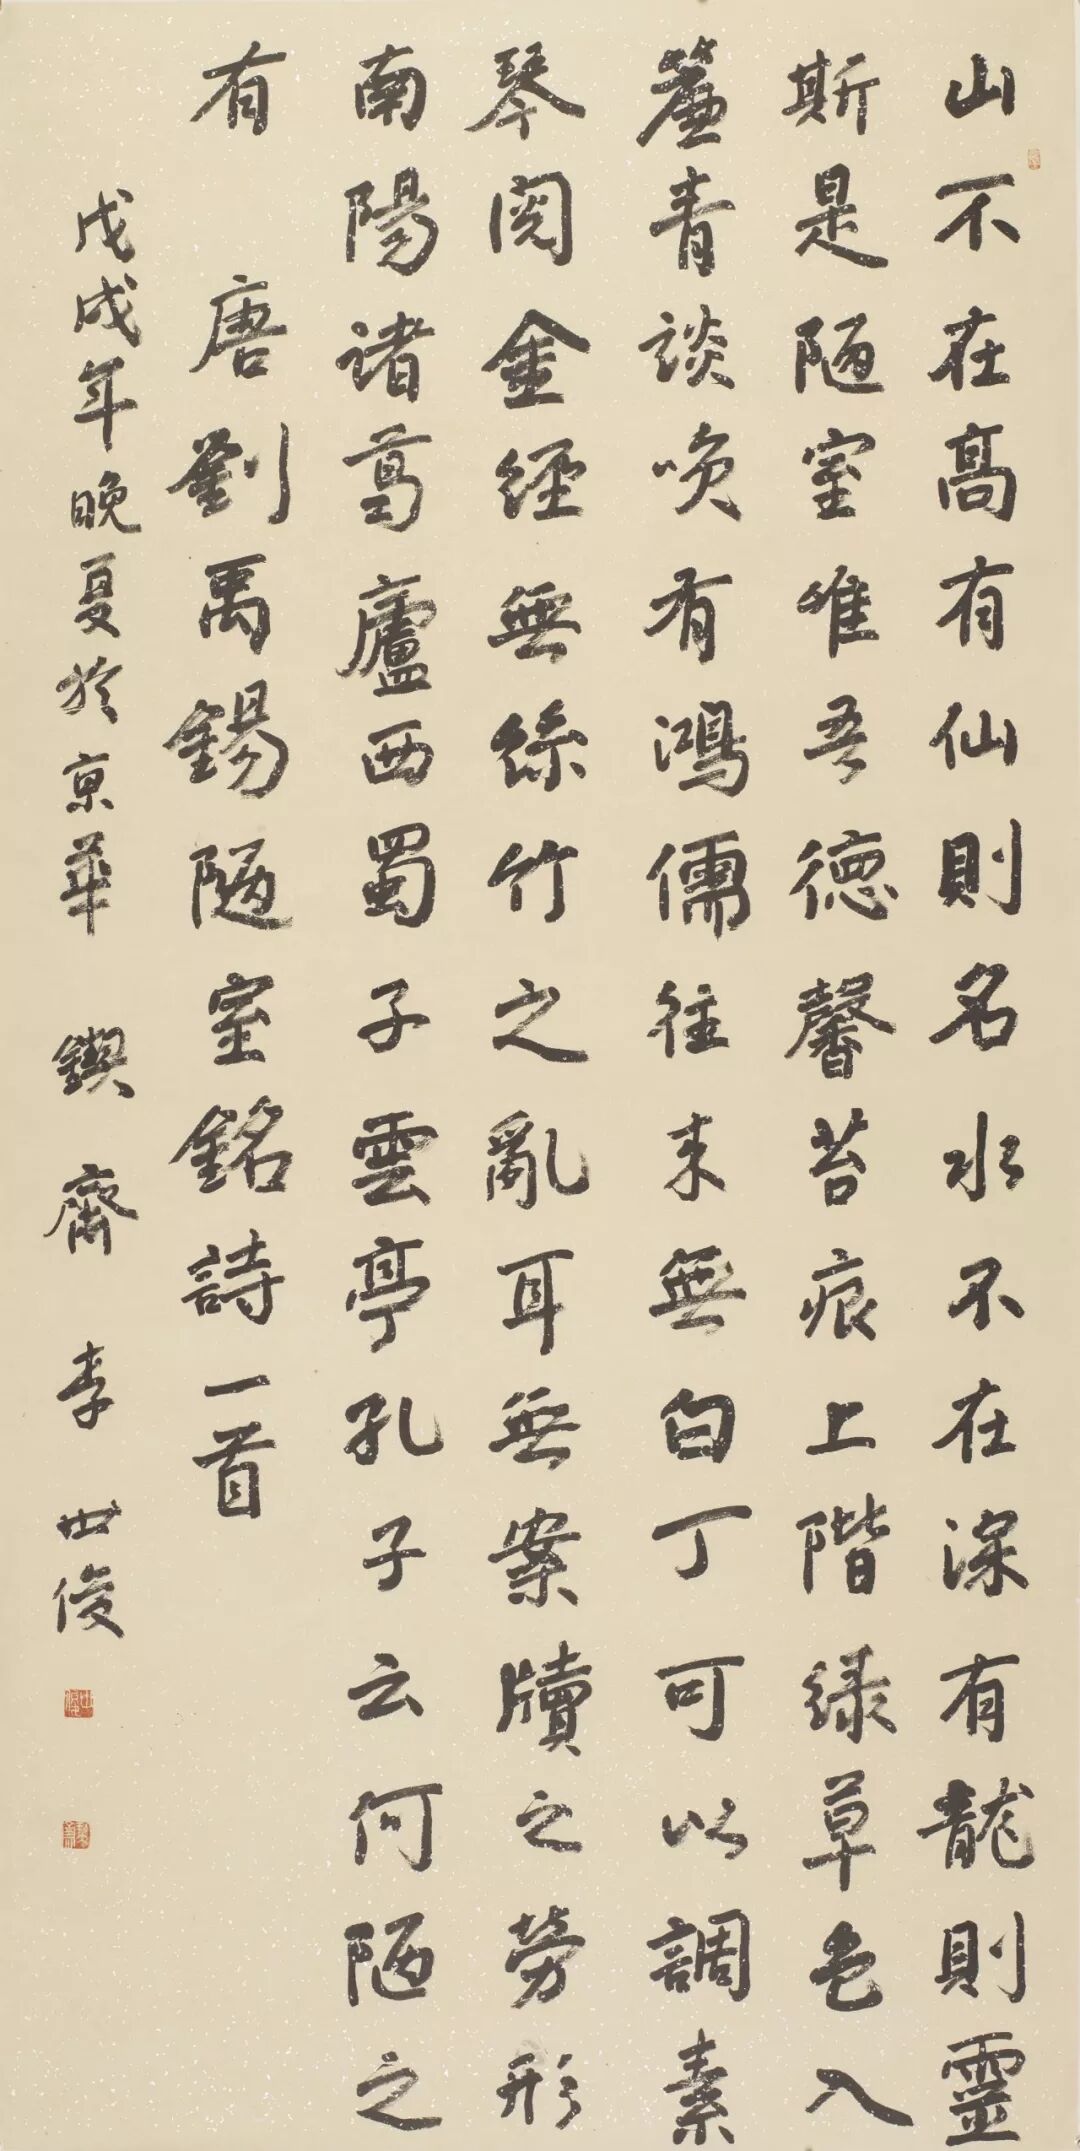 山不在高有仙則名水不在深有龍則靈
斯是陋室唯吾德馨苔痕上階緑草色入
簾青談咲有鴻儒往来無白丁可以調素
琴閱金經無絲竹之亂耳無案牘之勞形
南陽諸葛廬西蜀子雲亭孔子云何陋之
有 唐劉禹錫陋室銘詩一首
戊戌年晚夏於京華 鍥齋 李世俊